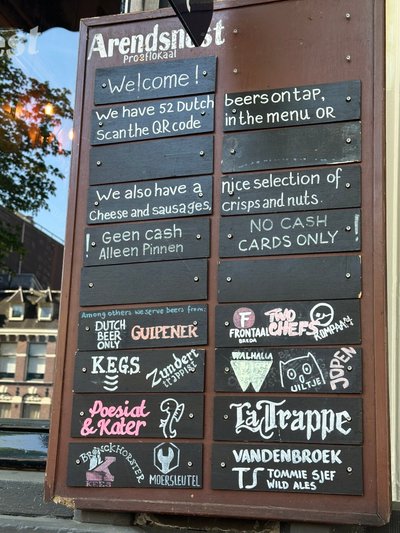 Arendsnest
Proeflokaal
Welcome!
We have 52 Dutch beers on tap,
Scan the QR code in the menu OR
We also have a nice selection of
Cheese and sausages, crisps and nuts.
! Geen cash NO CASH
Alleen Pinnen CARDS ONLY
Among others we serve beers from:
DUTCH
BEER
ONLY
GULPENER
F
FRONTAAL
BREDA
TWO
CHEFS
ROMPAAN
KEGS
Zundert
trappist
WALHALLA
UILTJE
JOPEN
Poesiat
& Kater
La Trappe
BRONCKHORSTER
K
KEES
MOERSLEUTEL
VANDENBROEK
TS TOMMIE SJEF
WILD ALES